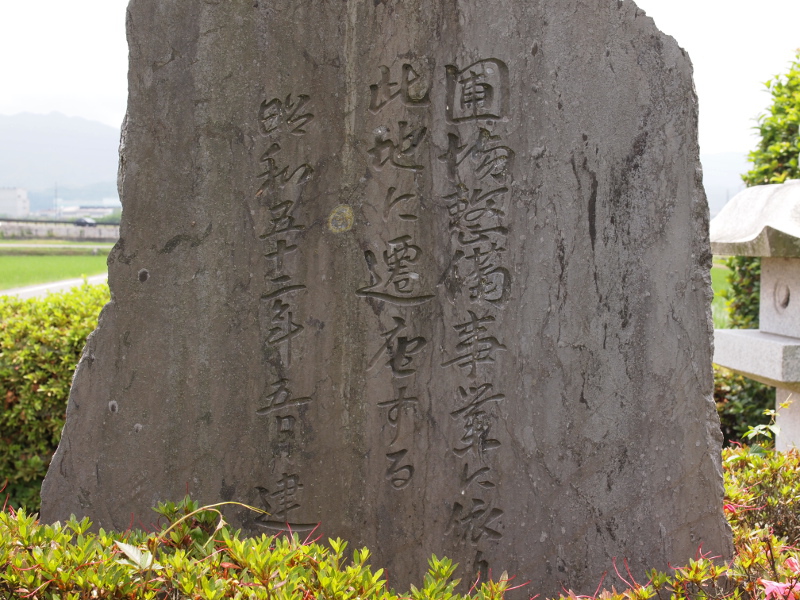 圃場整備事業に依り
此地に遷座する
昭和五十二年五月建